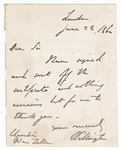 London
June 22 186
Dear Sir
I have signed
and sent off the
certificate and nothing
remains but for me to
thank you
yours sincerely
Wellington